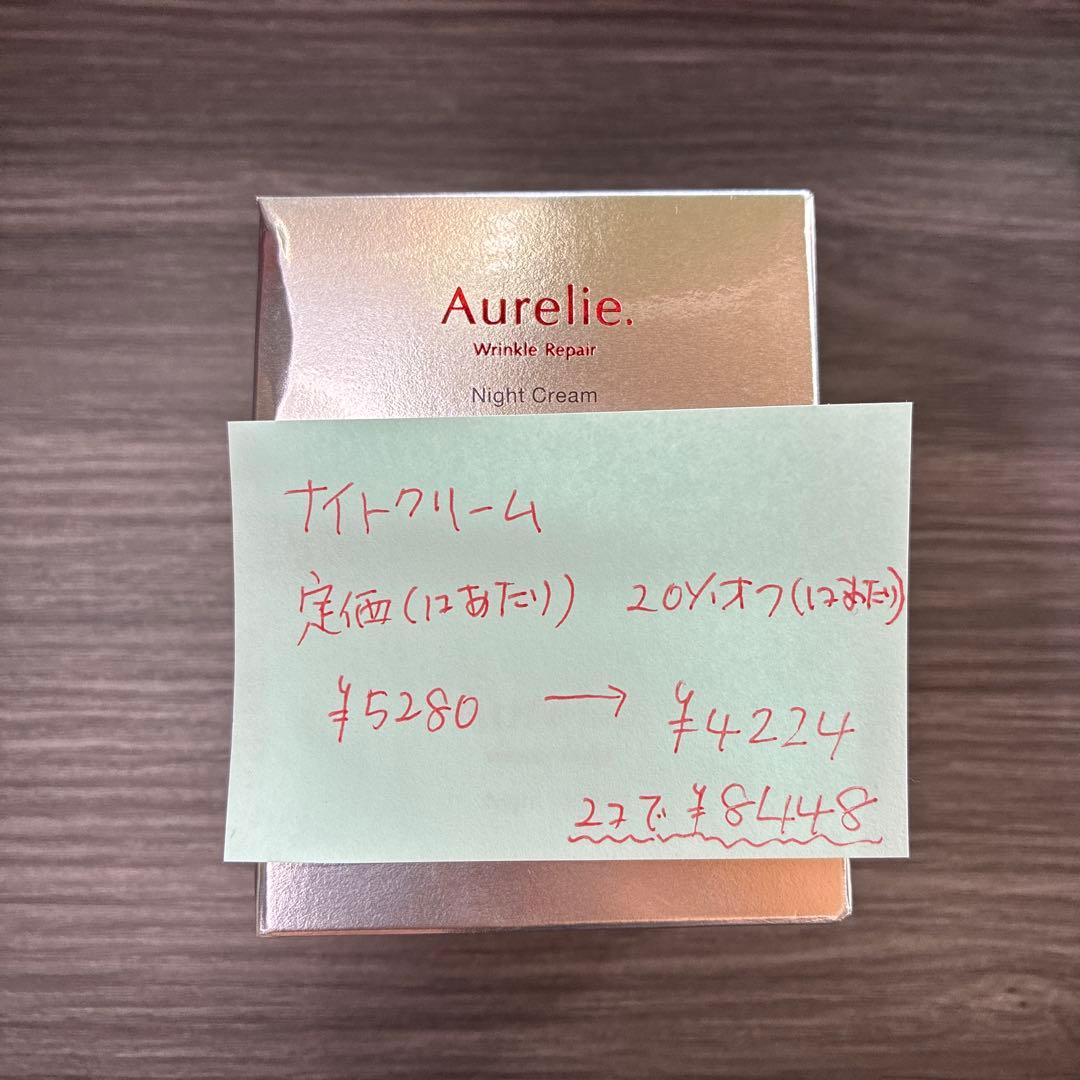 Aurelie.
Wrinkle Repair
Night Cream
ナイトクリーム
定価(1コあたり) 20%オフ(1コあたり)
¥5280 → ¥4224
2コで¥8448